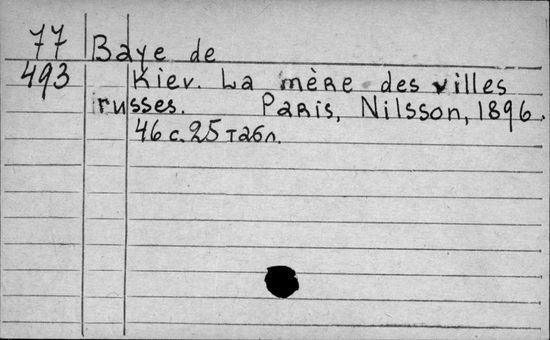 77 Baye de
493 Kiev. La mère des villes
russes. Paris, Nilsson, 1896.
46 с. 25 табл.